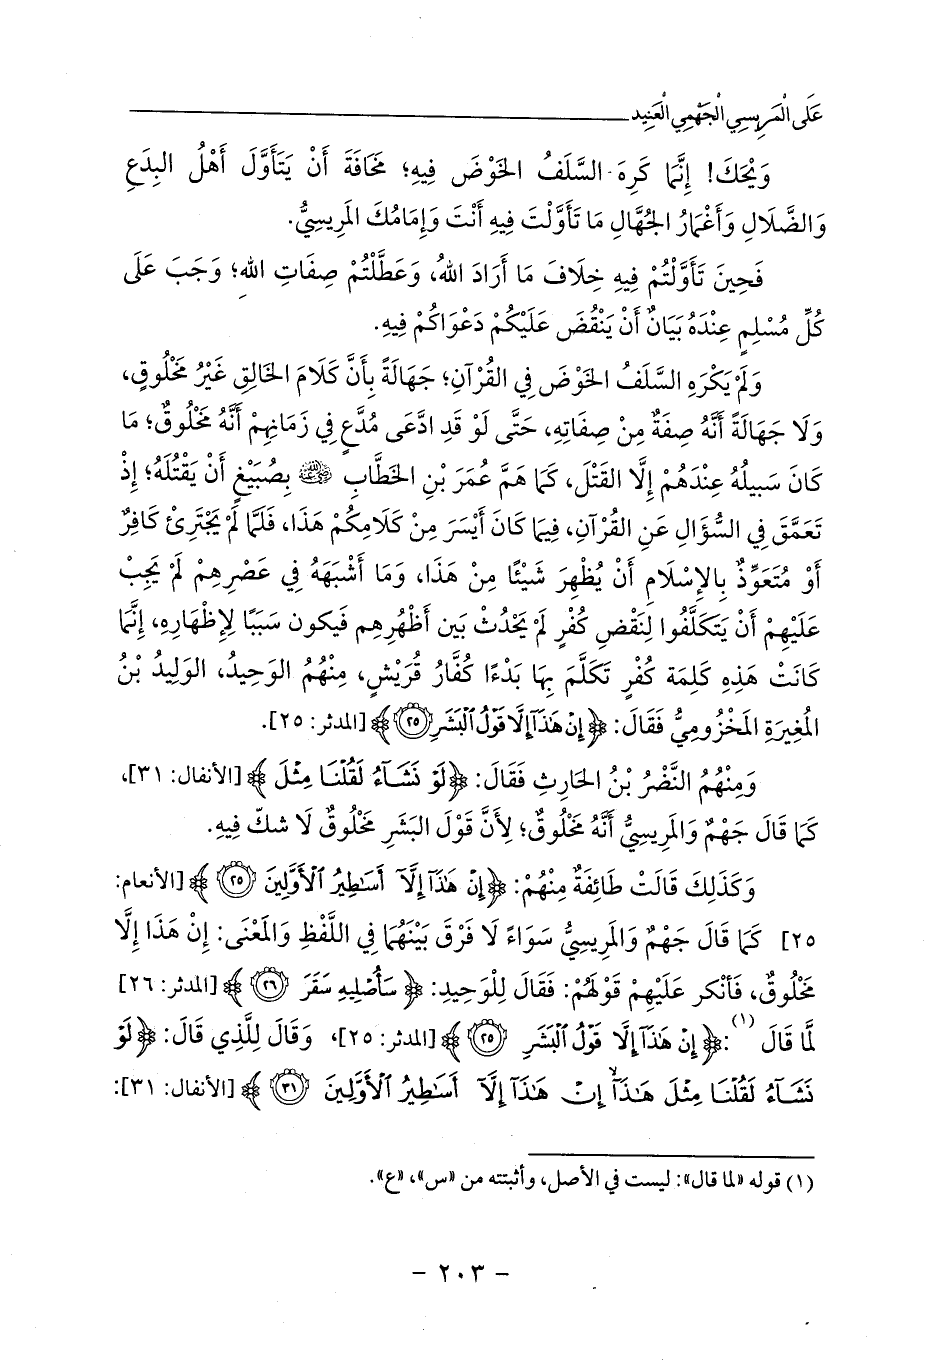 عَلَى الْمَرِيسِي الْجَهْمِي الْعَنِيد
وَيْحَكَ! إِنَّمَا كَرِهَ السَّلَفُ الخَوْضَ فِيهِ؛ مَخَافَةَ أَنْ يَتَأَوَّلَ أَهْلُ البِدَعِ
وَالضَّلَالِ وَأَغْمَارُ الجُهَّالِ مَا تَأَوَّلْتَ فِيهِ أَنْتَ وَإِمَامُكَ المَرِيسِيُّ.
فَحِينَ تَأَوَّلْتُمْ فِيهِ خِلَافَ مَا أَرَادَ اللهُ، وَعَطَّلْتُمْ صِفَاتِ اللهِ؛ وَجَبَ عَلَى
كُلِّ مُسْلِمٍ عِنْدَهُ بَيَانٌ أَنْ يَنْقُضَ عَلَيْكُمْ دَعْوَاكُمْ فِيهِ.
وَلَمْ يَكْرَهِ السَّلَفُ الخَوْضَ فِي القُرْآنِ؛ جَهَالَةً بِأَنَّ كَلَامَ الخَالِقِ غَيْرُ مَخْلُوقٍ،
وَلَا جَهَالَةً أَنَّهُ صِفَةٌ مِنْ صِفَاتِهِ، حَتَّى لَوْ قَدِ ادَّعَى مُدَّعٍ فِي زَمَانِهِمْ أَنَّهُ مَخْلُوقٌ؛ مَا
كَانَ سَبِيلُهُ عِنْدَهُمْ إِلَّا القَتْلَ، كَمَا هَمَّ عُمَرَ بْنِ الخَطَّابِ رضي الله عنه بِصُبَيْغٍ أَنْ يَقْتُلَهُ؛ إِذْ
تَعَمَّقَ فِي السُّؤَالِ عَنِ القُرْآنِ، فِيمَا كَانَ أَيْسَرَ مِنْ كَلَامِكُمْ هَذَا، فَلَمَّا لَمْ يَجْتَرِئْ كَافِرٌ
أَوْ مُتَعَوِّذٌ بِالإِسْلَامِ أَنْ يُظْهِرَ شَيْئًا مِنْ هَذَا، وَمَا أَشْبَهَهُ فِي عَصْرِهِمْ لَمْ يَجِبْ
عَلَيْهِمْ أَنْ يَتَكَلَّفُوا لِنَقْضِ كُفْرٍ لَمْ يَحْدُثْ بَيْن أَظْهُرِهِم فَيكون سَبَبًا لِإِظْهَارِهِ، إِنَّمَا
كَانَتْ هَذِهِ كَلِمَة كُفْرٍ تَكَلَّمَ بِهَا بَدْءًا كُفَّارُ قُرَيْشٍ، مِنْهُمُ الوَحِيدُ، الوَلِيدُ بْنُ
المُغِيرَةِ المَخْزُومِيُّ فَقَالَ: ﴿إِنْ هَٰذَآ إِلَّا قَوْلُ ٱلْبَشَرِ ٢٥﴾ [المدثر: ٢٥].
وَمِنْهُمُ النَّضْرُ بْنُ الحَارِثِ فَقَالَ: ﴿لَوْ نَشَآءُ لَقُلْنَا مِثْلَ﴾ [الأنفال: ٣١]،
كَمَا قَالَ جَهْمٌ وَالمَرِيسِيُّ أَنَّهُ مَخْلُوقٌ؛ لِأَنَّ قَوْلَ البَشَرِ مَخْلُوقٌ لَا شكّ فِيهِ.
وَكَذَلِكَ قَالَتْ طَائِفَةٌ مِنْهُمْ: ﴿إِنْ هَٰذَآ إِلَّآ أَسَٰطِيرُ ٱلْأَوَّلِينَ ٢٥﴾ [الأنعام:
٢٥] كَمَا قَالَ جَهْمٌ وَالمَرِيسِيُّ سَوَاءً لَا فَرْقَ بَيْنَهُمَا فِي اللَّفْظِ وَالمَعْنَى: إِنْ هَذَا إِلَّا
مَخْلُوقٌ، فَأَنْكر عَلَيْهِمْ قَوْلَهُمْ: فَقَالَ لِلْوَحِيدِ: ﴿سَأُصْلِيهِ سَقَرَ ٢٦﴾ [المدثر: ٢٦]
لَمَّا قَالَ (١): ﴿إِنْ هَٰذَآ إِلَّا قَوْلُ ٱلْبَشَرِ ٢٥﴾ [المدثر: ٢٥]، وَقَالَ لِلَّذِي قَالَ: ﴿لَوْ
نَشَآءُ لَقُلْنَا مِثْلَ هَٰذَآ إِنْ هَٰذَآ إِلَّآ أَسَٰطِيرُ ٱلْأَوَّلِينَ ٣١﴾ [الأنفال: ٣١]:
(١) قوله «لما قال»: ليست في الأصل، وأثبتته من «س»، «ع».
- ٢٠٣ -